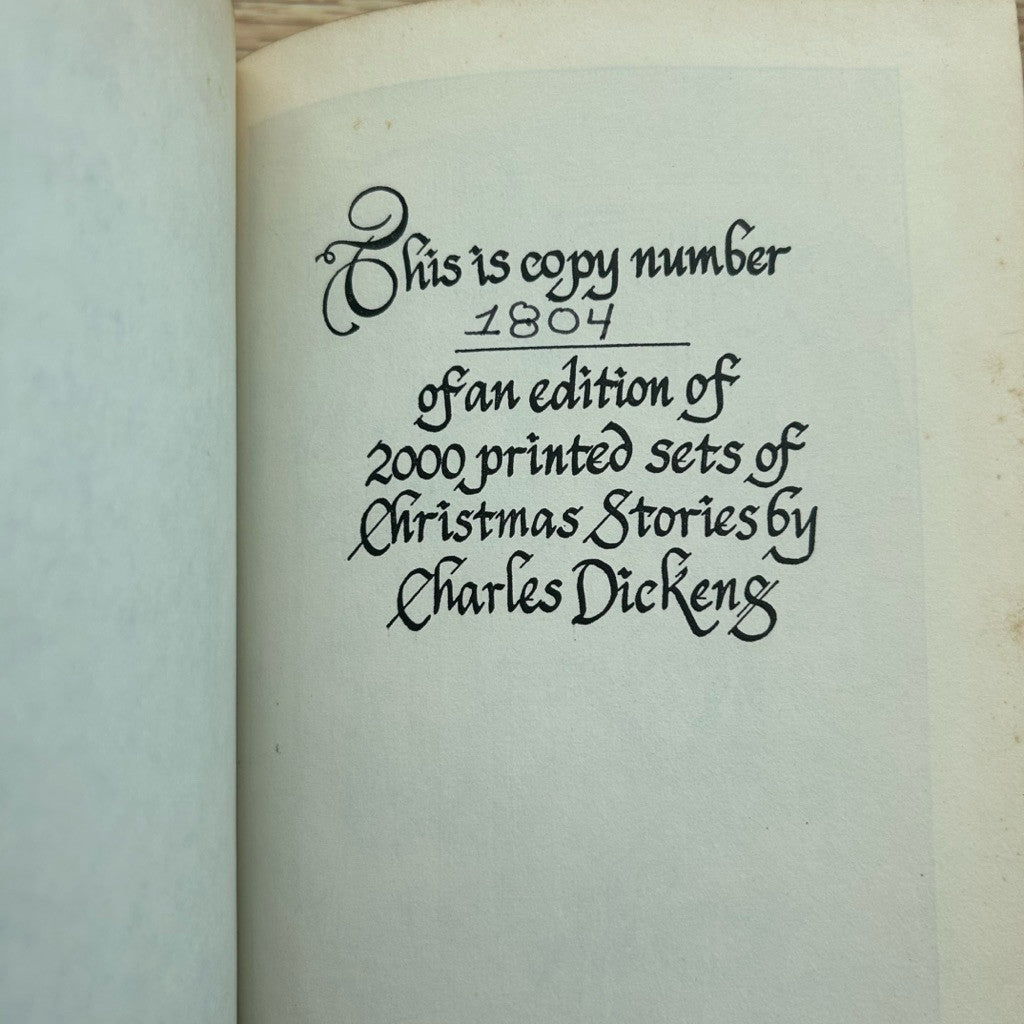 This is copy number
1804
of an edition of
2000 printed sets of
Christmas Stories by
Charles Dickens